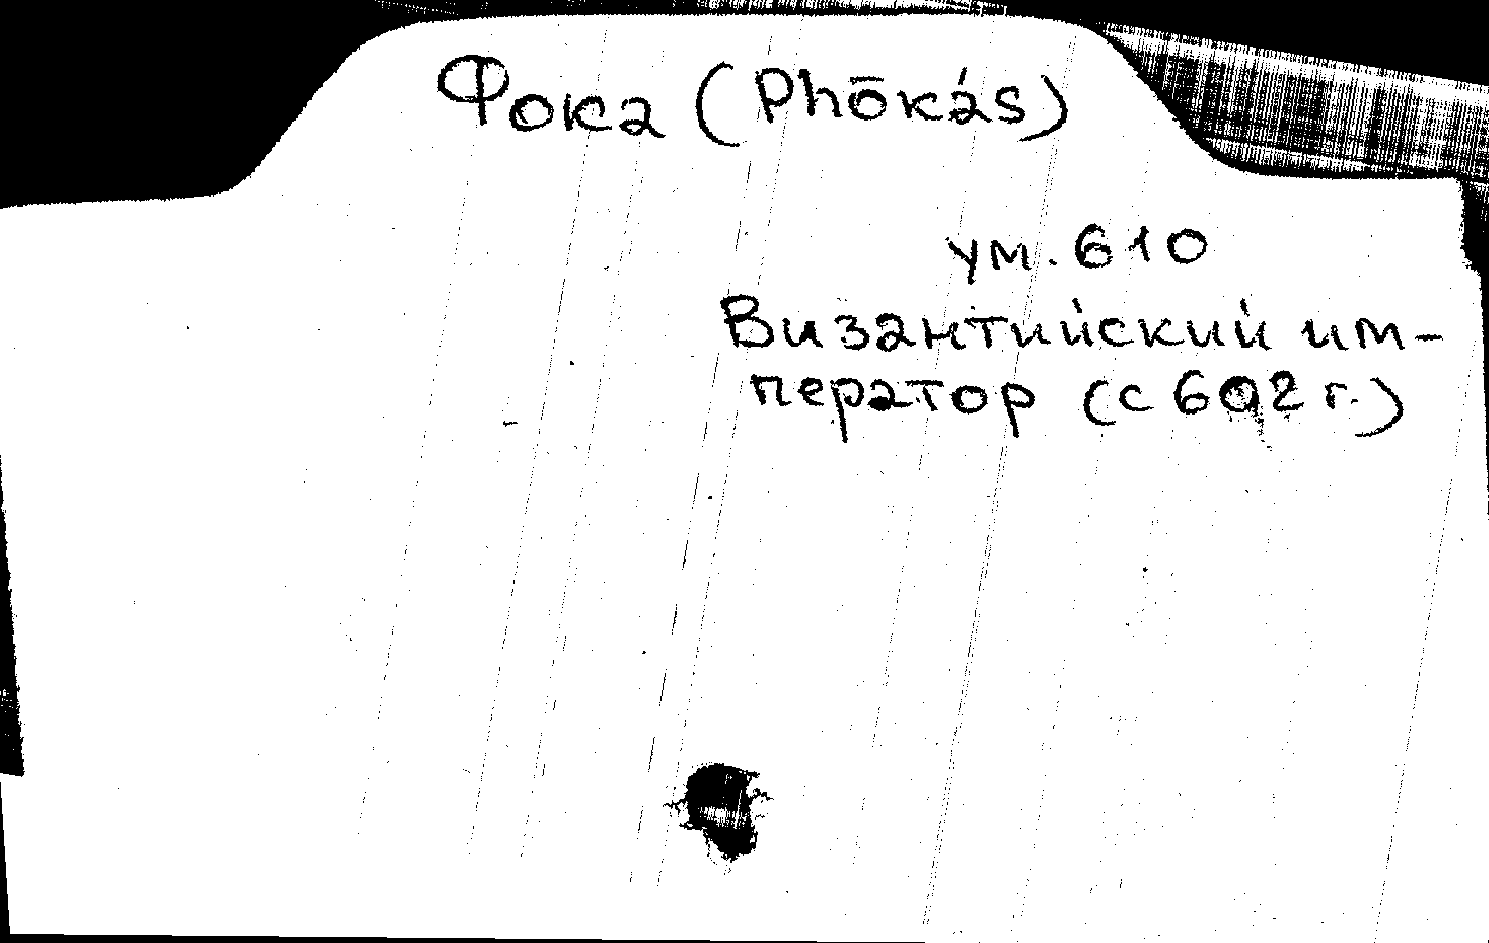 Фока (Phōkás)
ум. 610
Византийский им-
ператор (с 602 г.)